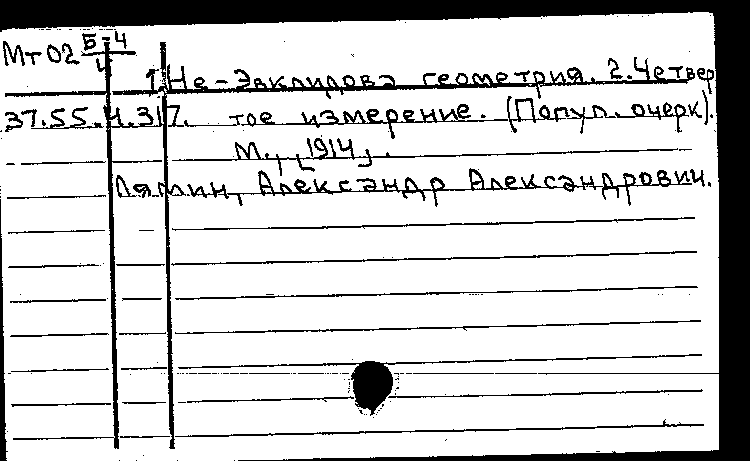 Мт 02 Б-4
4
1. Не-Эвклидова геометрия. 2. Четвер
37.55.4.317. тое измерение. (Попул. очерк).
М., [1914].
Лямин, Александр Александрович.